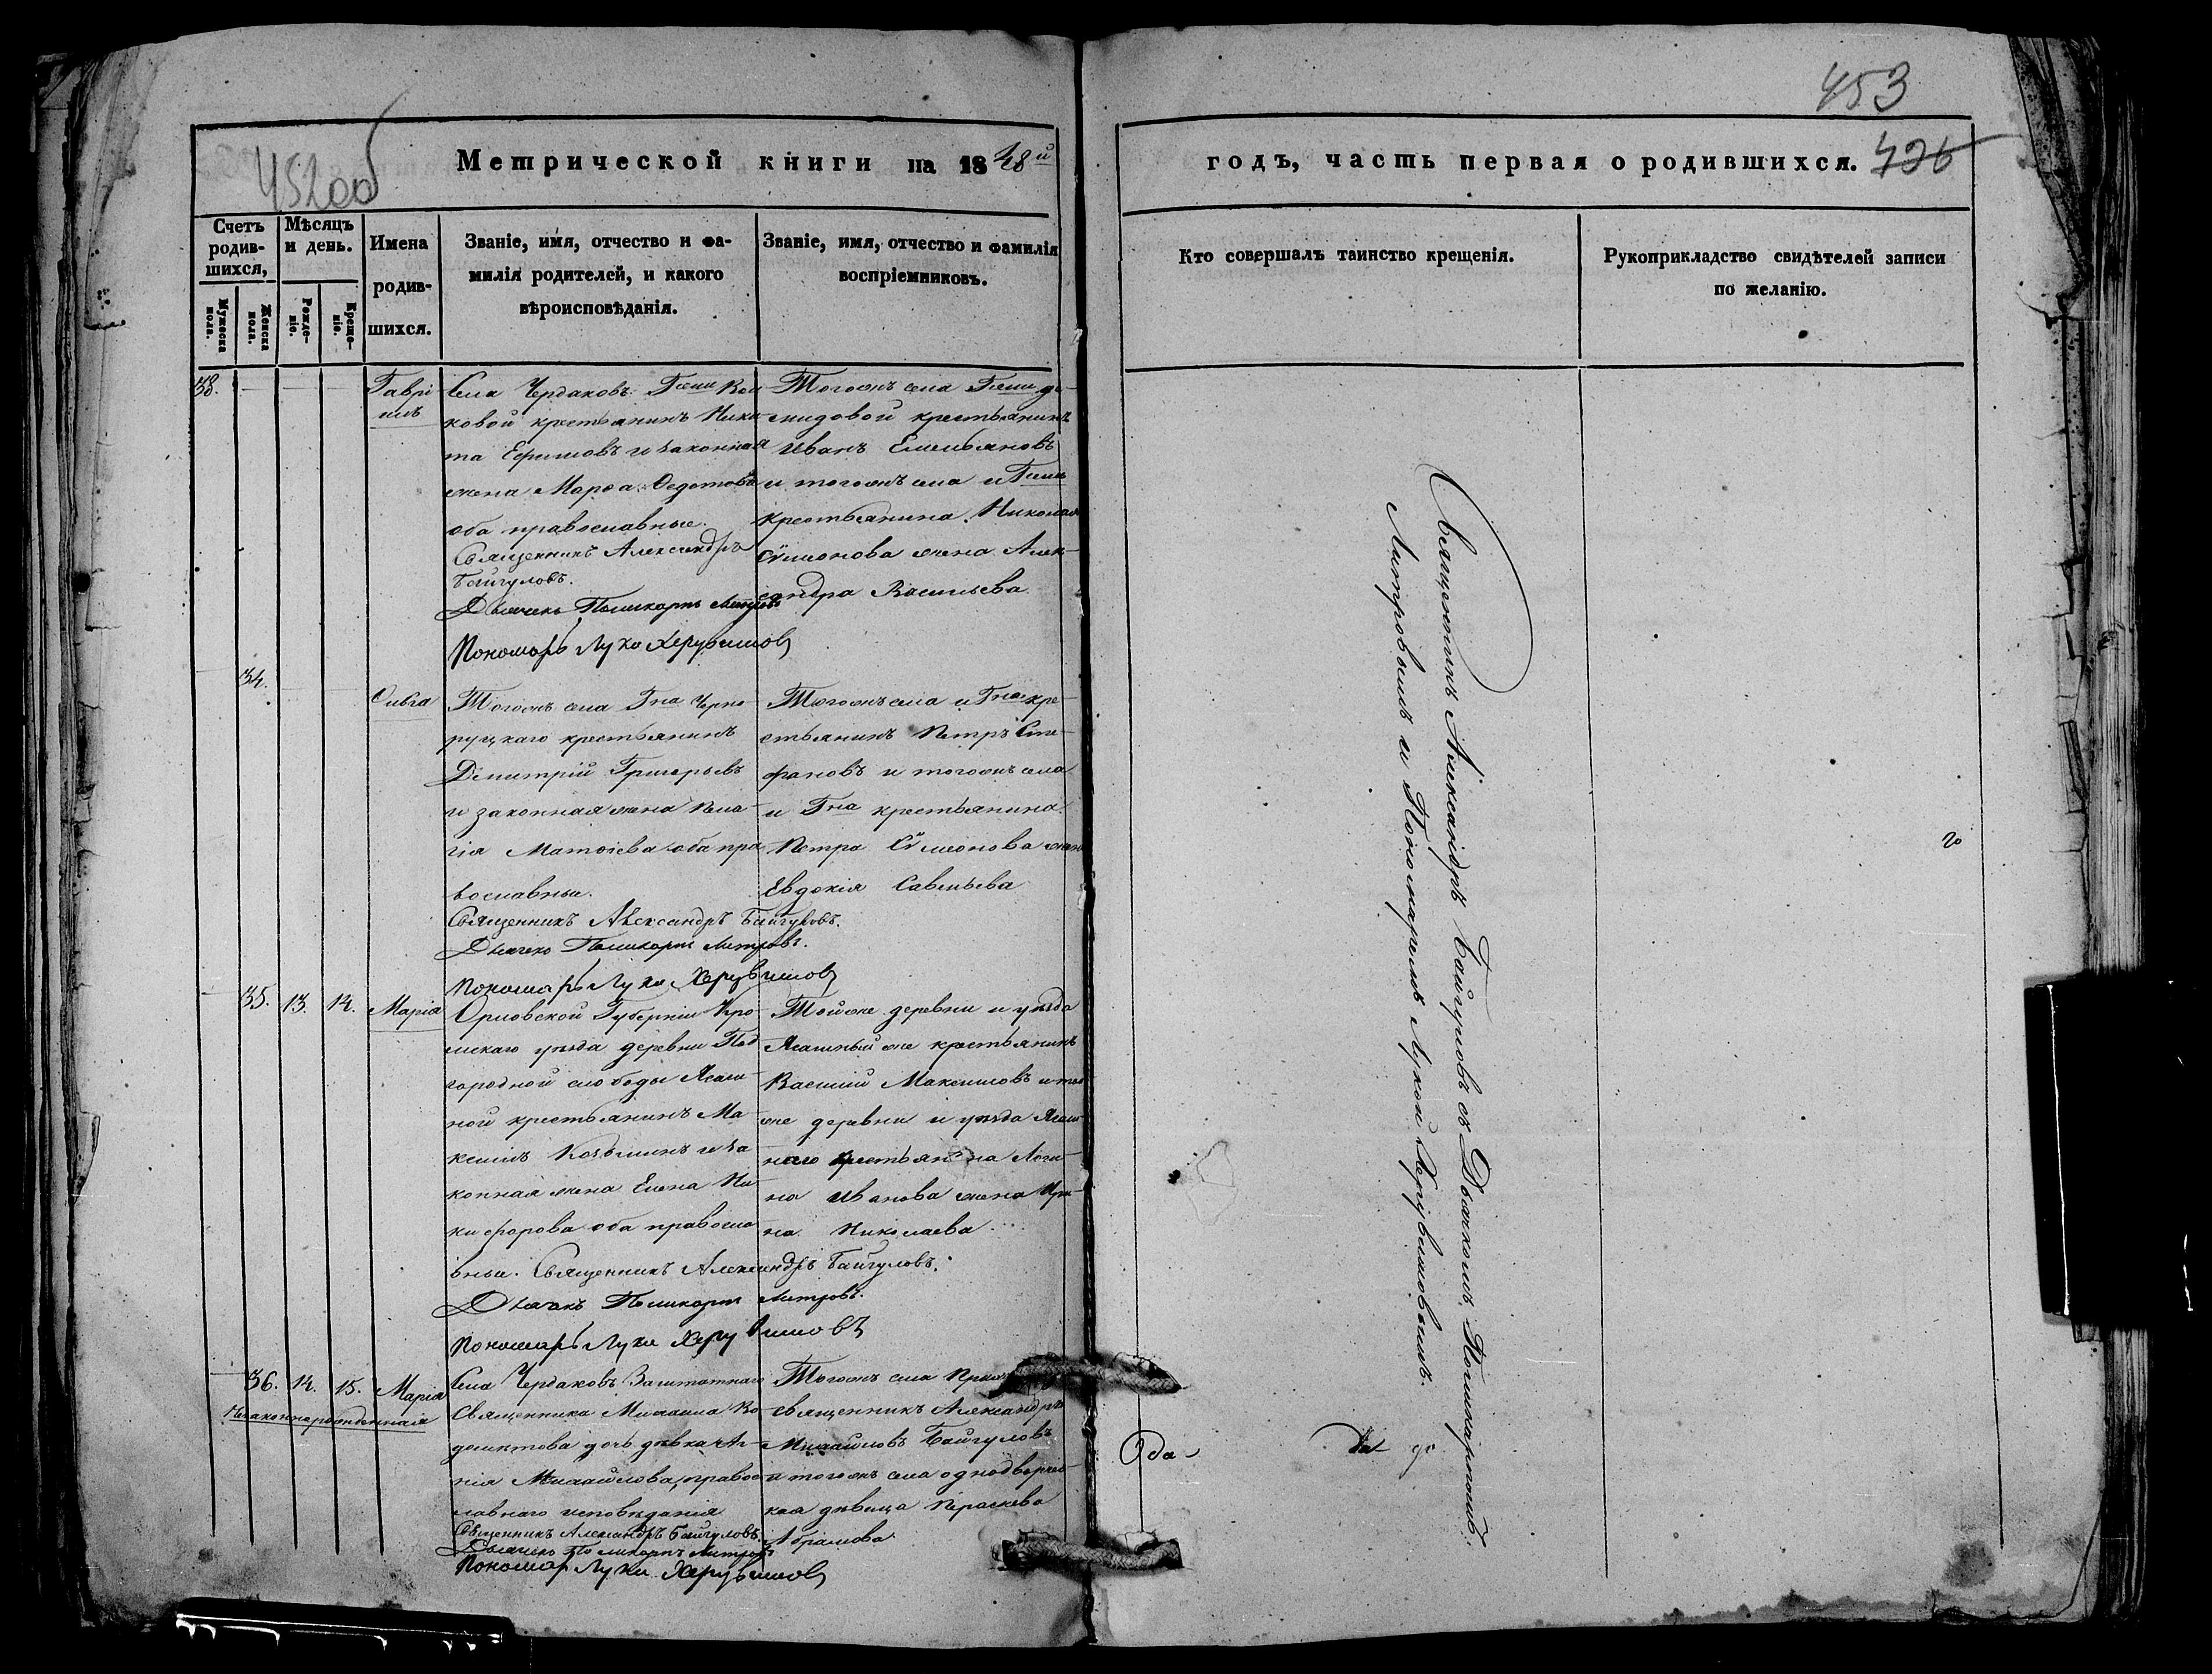 453
452об
Метрической книги на 1848й
годъ, часть первая о родившихся. 426
Счетъ родив-шихся,
Мужеска пола.
Женска пола.
Мѣсяцъ и день.
Рожде-ніе.
Креще-ніе.
Имена
родив-
шихся.
Званіе, имя, отчество и фа-
милія родителей, и какого
вѣроисповѣданія.
Званіе, имя, отчество и фамилія
воспріемниковъ.
Кто совершалъ таинство крещенія.
Рукоприкладство свидѣтелей записи
по желанію.
38.
Гаврі
илъ
Села Чердаковъ Гжи
ковой крестьянинъ Ники
та Ефимовъ и законная
жена Марѳа Ѳедотова
оба православные.
Священникъ Александръ
Байгуловъ.
Дьячекъ Поликарпъ Митровъ
Пономарь Лука Херувимовъ
Тогожъ села Гжи де
мидовой крестьянинъ
Иванъ Емельяновъ
и тогожъ села и Гжи
крестьянина Николая
Сѵмеонова жена Алек-
сандра Васильева
34.
Ольга
Тогожъ села Гна Черно
руцкаго крестьянинъ
Димитрій Григорьевъ
и законная жена Пела-
гія Матѳіева оба пра
вославные.
Священникъ Александръ Байгуловъ.
Дьячекъ Поликарпъ Митровъ.
Пономарь Лука Херувимовъ
Тогожъ села и Гна кре-
стьянинъ Петръ Сте-
фановъ и тогожъ села
и Гна крестьянина
Петра Сѵмеонова жена
Евдокія Савельева
35. 13. 14. Марія
Орловской Губерніи Кро
мскаго уѣзда деревни Под
городной слободы Ясаш-
ной крестьянинъ Ма-
ксимъ Козьминъ и за
конная жена Елена Ни-
кифорова оба правосла
вные. Священникъ Александръ Байгуловъ.
Дьячекъ Поликарпъ Митровъ.
Пономарь Лука Херувимовъ
Тойже деревни и уѣзда
Ясашный же крестьянинъ
Василій Максимовъ и той
же деревни и уѣзда Ясаш-
наго крестьянина Логи-
на Иванова жена Ири-
на Николаева
36. 14. 15. Марія
Незаконнорожденная
Села Чердаковъ Заштатнаго
Священника Михаила Во-
дочь дѣвка
Михайлова, правос-
лавнаго исповѣданія
Священникъ Александръ Байгуловъ
Дьячекъ Поликарпъ Митровъ
Пономарь Лука Херувимовъ
Тогожъ села
священникъ Александръ
Михайловъ Байгуловъ
и тогожъ села однодворчес-
кая дѣвица Параскева
Абрамова
Священникъ Александръ Байгуловъ съ Дьячкомъ Поликарпомъ
Митровымъ и Пономаремъ Лукой Херувимовымъ.